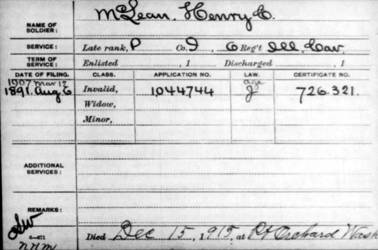 McLean, Henry C.
NAME OF SOLDIER:
SERVICE: Late rank, P Co. I, 6 Reg't Ill. Cav.
TERM OF SERVICE: Enlisted , 1 Discharged , 1
DATE OF FILING. CLASS. APPLICATION NO. LAW. CERTIFICATE NO.
1907 Mar 12 age
1891. Aug 6 Invalid, 1044744 J 726.321.
Widow,
Minor,
ADDITIONAL SERVICES:
REMARKS:
Died Dec 15, 1915, at Pt Orchard Wash